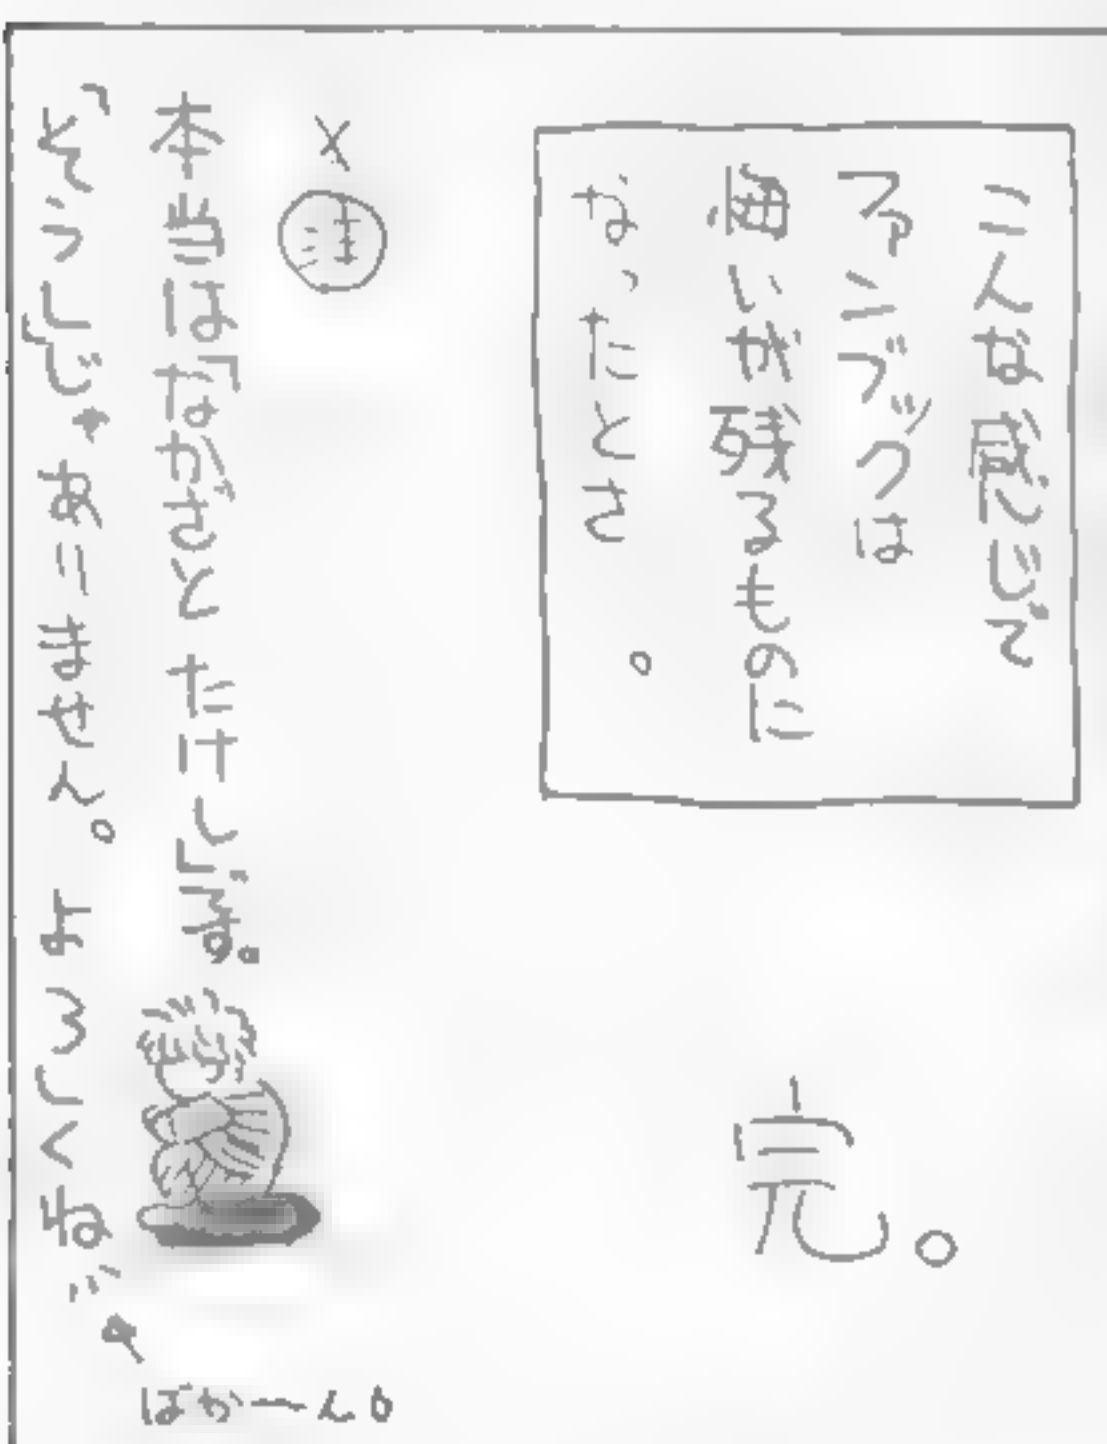 こんな感じで
ファンブックは
悔いが残るものに
なったとさ。
完。
本当は「ながさと たけし」です。
「そうし」じゃありません。よろしくね
ばかーん